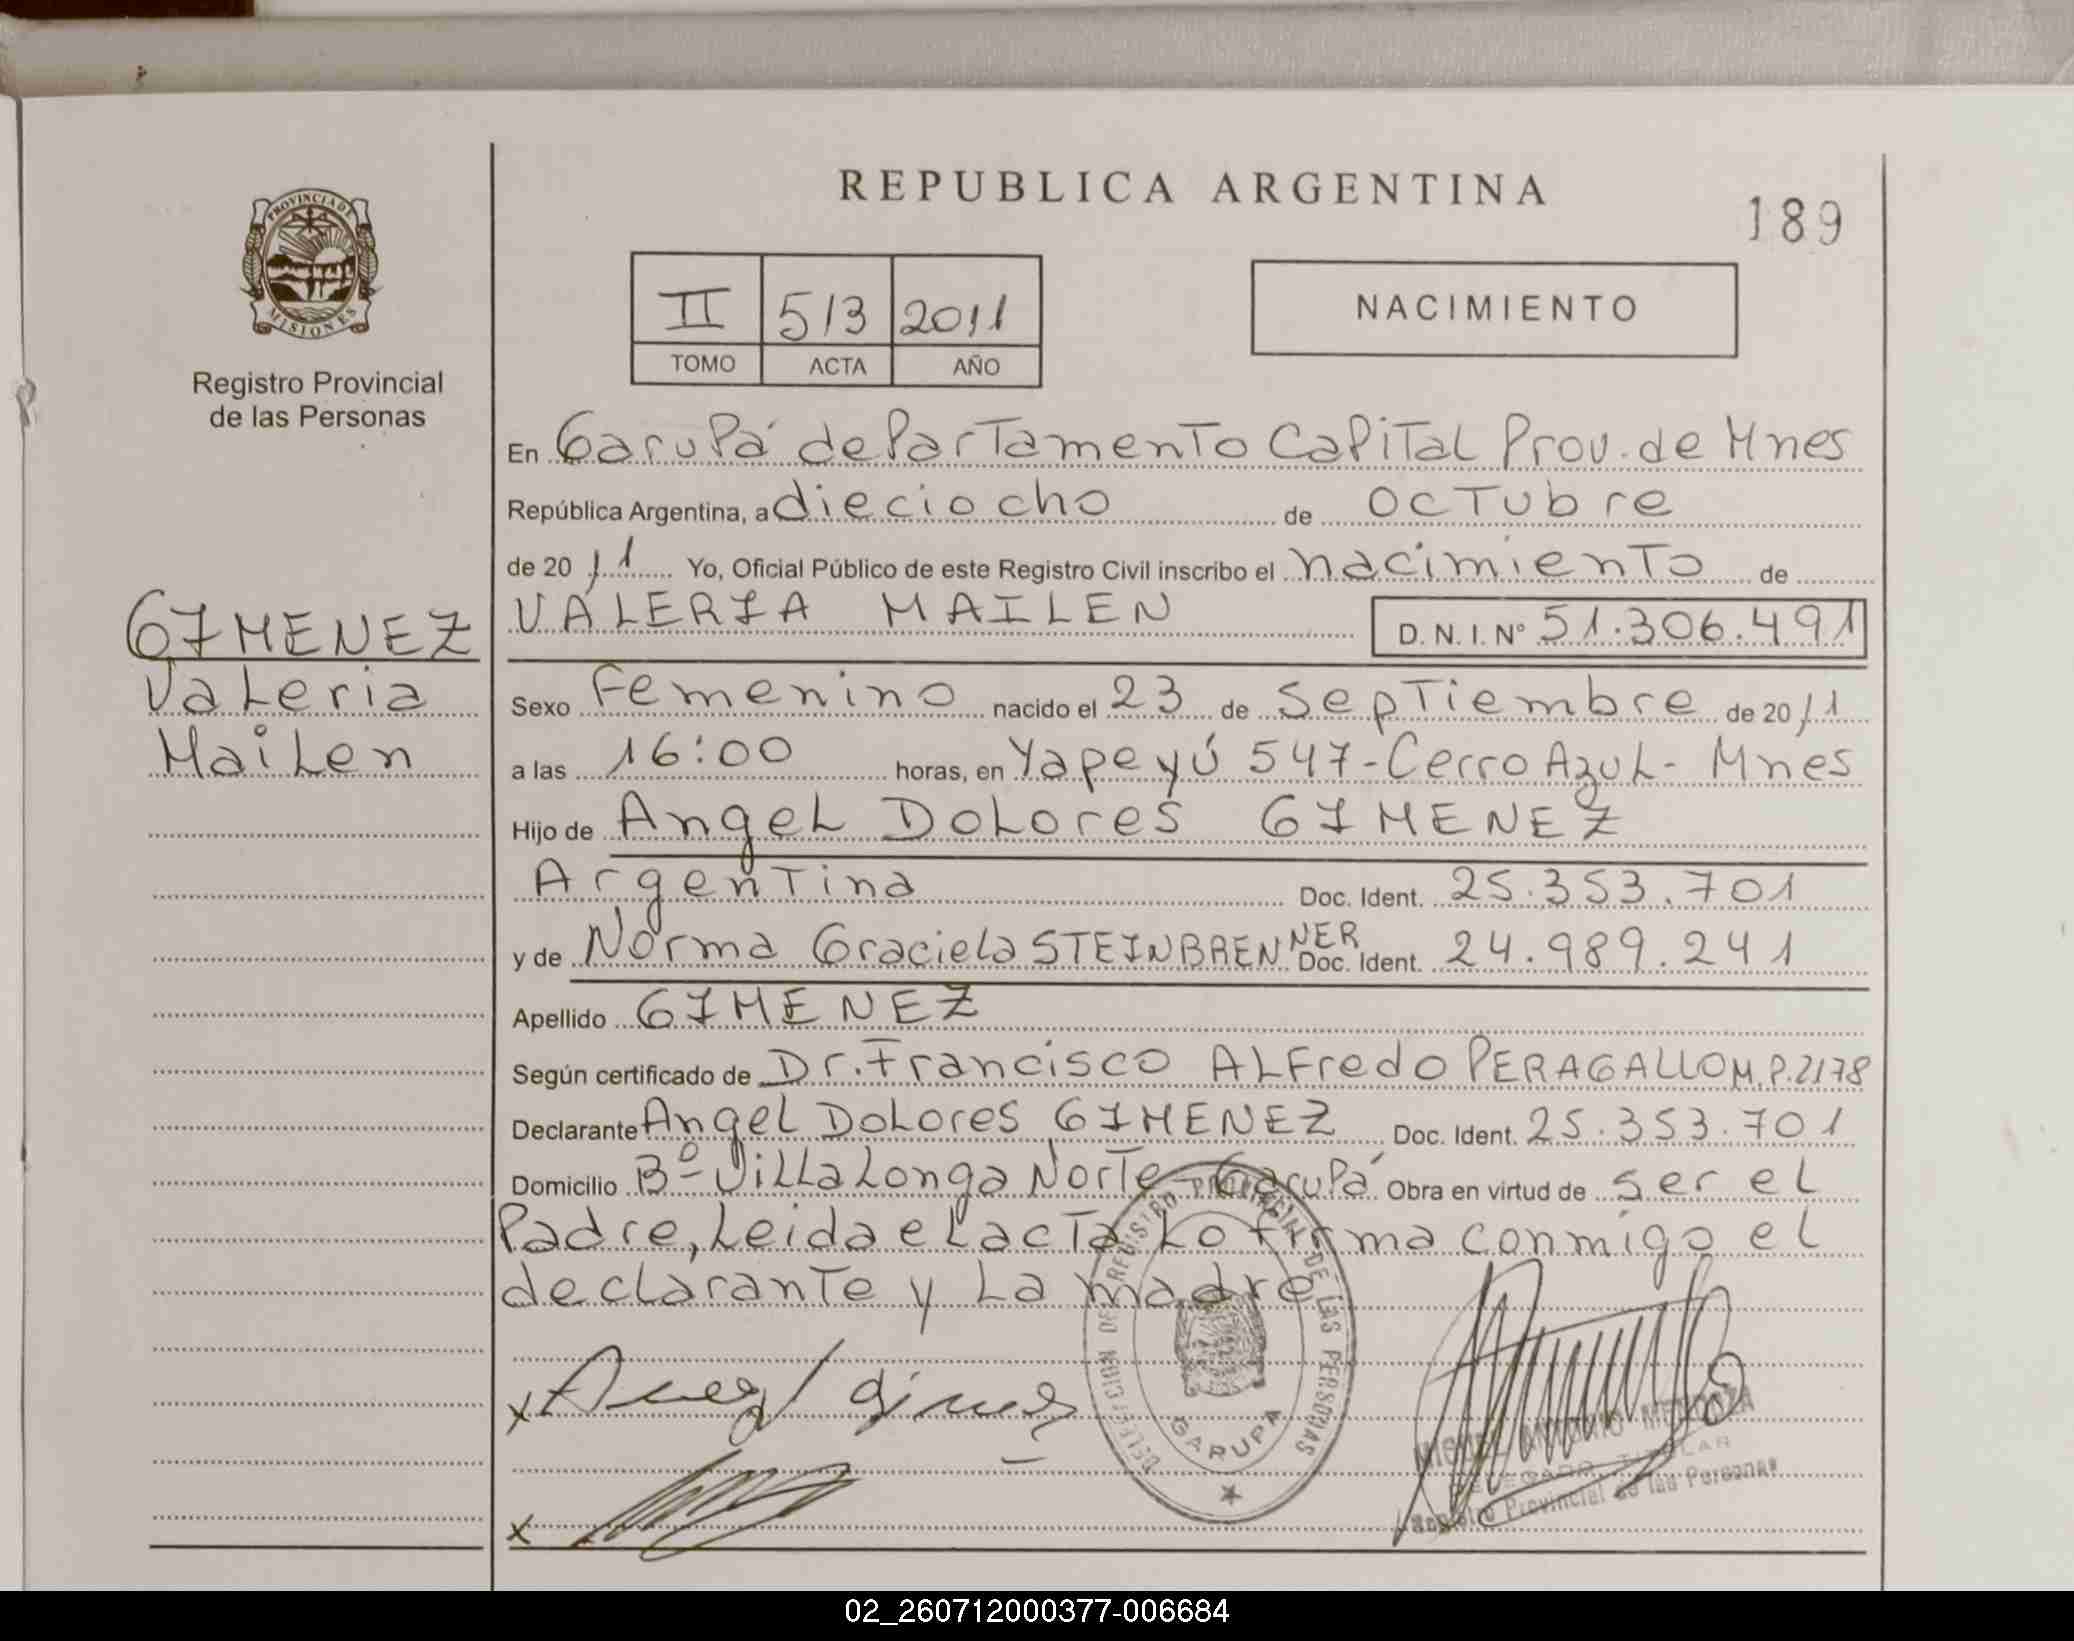 REPUBLICA ARGENTINA
189
PROVINCIA DE
MISIONES
Registro Provincial
de las Personas
II 513 2011
TOMO ACTA AÑO
NACIMIENTO
En Garupá departamento Capital Prov. de Mnes
República Argentina, a dieciocho de octubre
de 2011 Yo, Oficial Público de este Registro Civil inscribo el nacimiento de
VALERIA MAILEN D.N.I. Nº 51.306.491
GIMENEZ
Valeria
Mailen
Sexo Femenino nacido el 23 de Septiembre de 2011
a las 16:00 horas, en Yapeyú 547-Cerro Azul- Mnes
Hijo de Angel Dolores GIMENEZ
Argentina Doc. Ident. 25.353.701
y de Norma Graciela STEINBRENNER Doc. Ident. 24.989.241
Apellido GIMENEZ
Según certificado de Dr. Francisco Alfredo PERAGALLO M.P.2178
Declarante Angel Dolores GIMENEZ Doc. Ident. 25.353.701
Domicilio Bº Villalonga Norte - Garupá Obra en virtud de ser el
Padre, Leida el acta lo firma conmigo el
declarante y la madre
x Angel Gimenez
x
DELEGACION DEL REGISTRO PROVINCIAL DE LAS PERSONAS
GARUPA
MIGUEL ANTONIO MENDOZA
DELEGADO TITULAR
Registro Provincial de las Personas
02_260712000377-006684